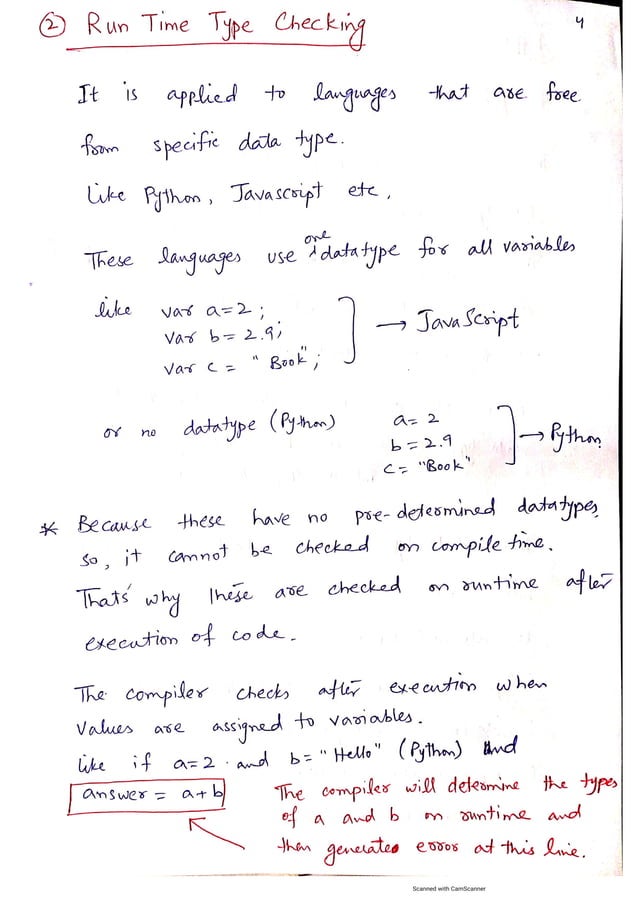 ② Run Time Type Checking
4
It is applied to languages that are free
from specific data type.
like Python, Javascript etc.
These languages use one datatype for all variables
like var a=2;
var b=2.9;
var c = "Book";
→ JavaScript
or no datatype (Python)
a=2
b=2.9
c="Book"
→ Python
* Because these have no pre-determined datatypes,
so, it cannot be checked on compile time.
That's why these are checked on runtime after
execution of code.
The compiler checks after execution when
values are assigned to variables.
like if a=2 and b="Hello" (Python) And
answer = a+b
The compiler will determine the types
of a and b on runtime and
then generates error at this line.
Scanned with CamScanner